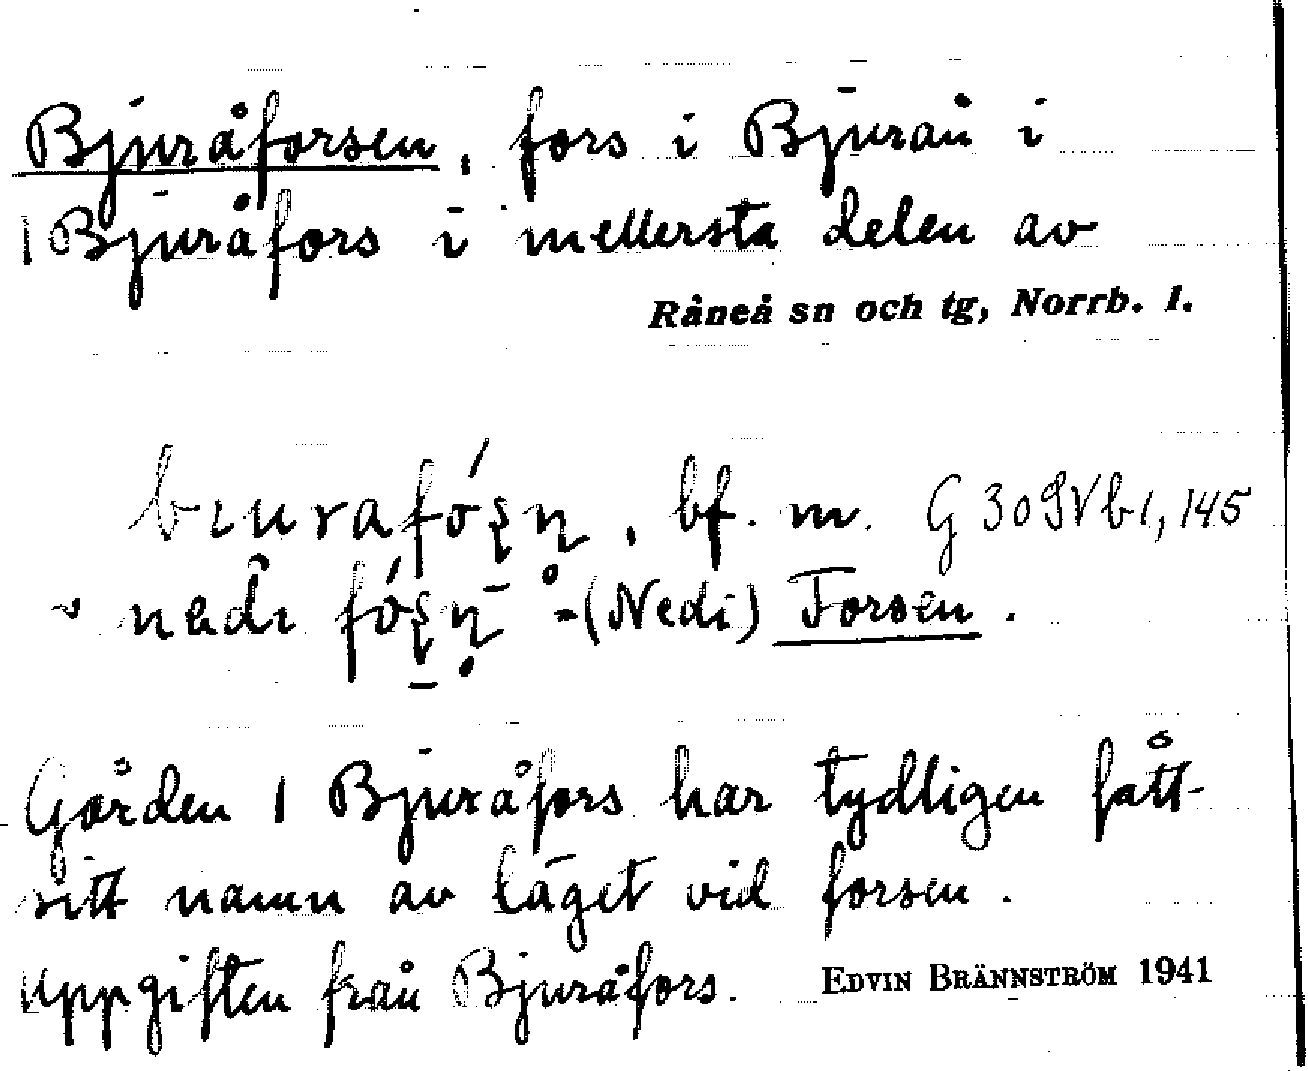 Bjuråforsen, fors i Bjurån i
1 Bjuråfors i mellersta delen av
Råneå sn och tg, Norrb. l.
bf. m. G 30
(Nedi) Forsen.
Gården 1 Bjuråfors har tydligen fått
sitt namn av läget vid forsen.
Uppgiften från Bjuråfors. EDVIN BRÄNNSTRÖM 1941